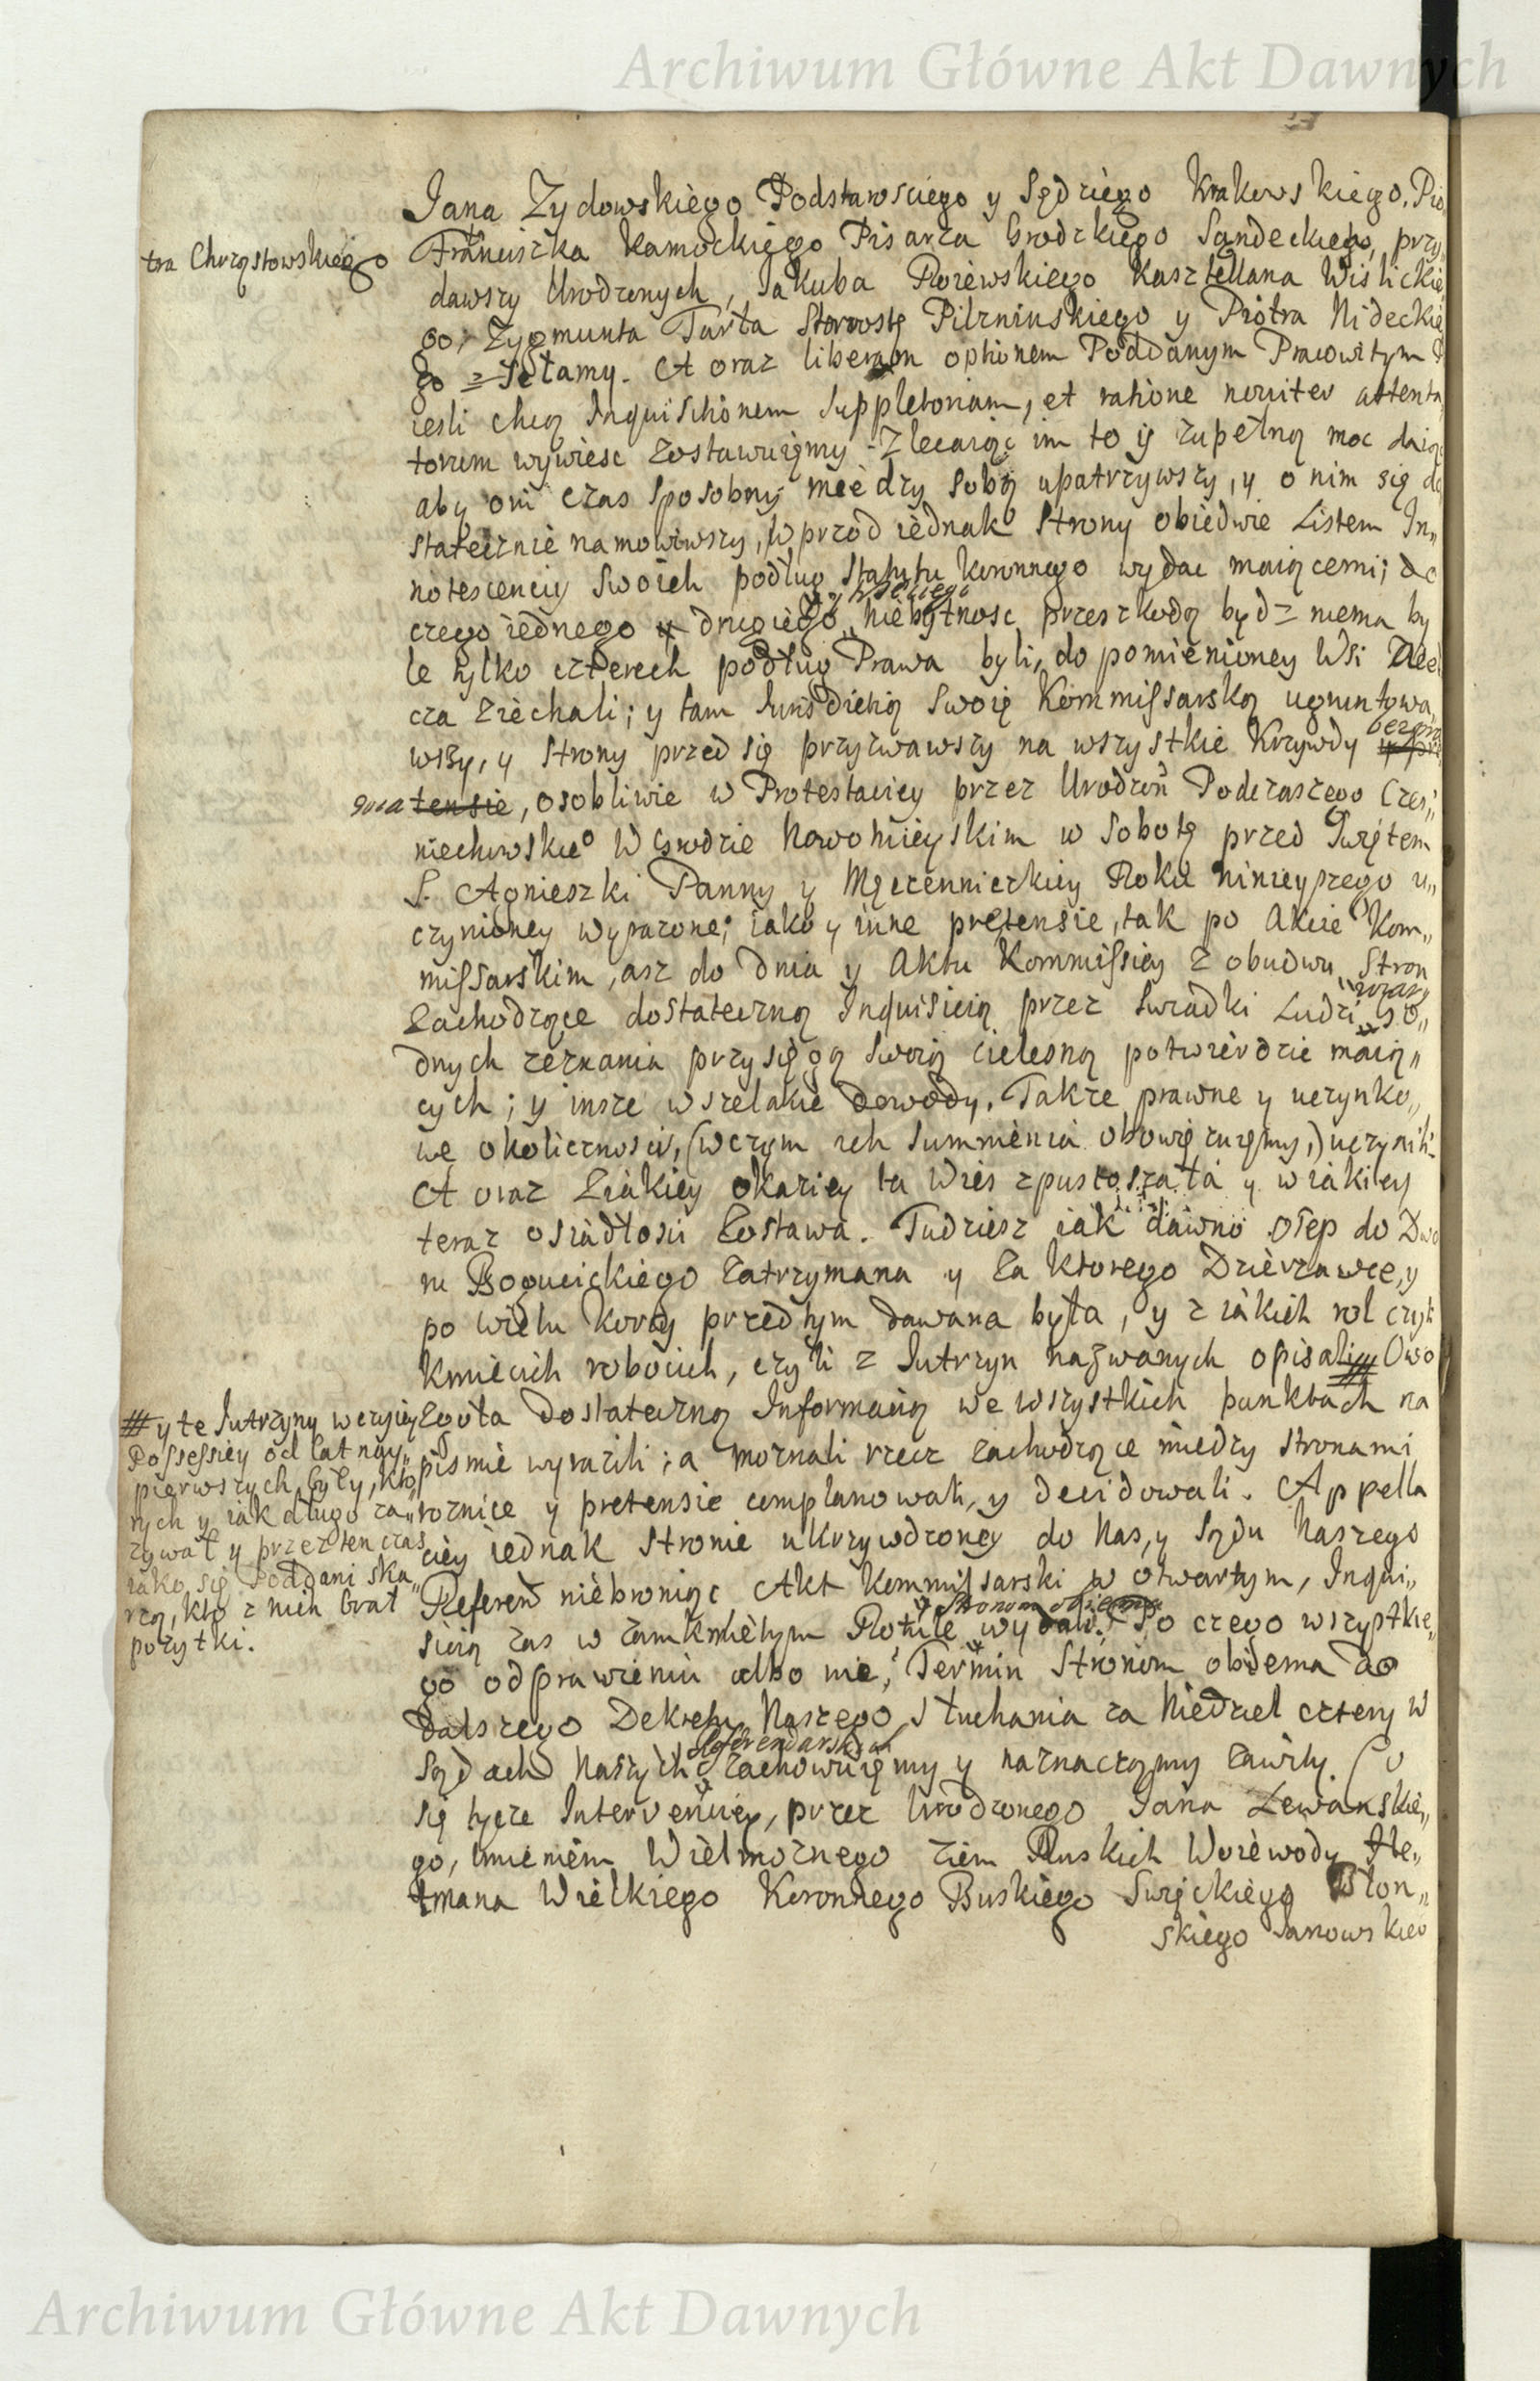 Archiwum Główne Akt Dawnych
Jana Zydowskiego Podstarosciego y Sędziego Krakowskiego, Pio
tra Chrząstowskiego
Franciszka Kamockiego Pisarza Grodzkiego Sandeckiego, przy,,
dawszy Urodzonych, Jakuba Rożewskiego Kasztellana Wislickie
go, Zygmunta Tarła Starostę Pilzninskiego y Piotra Nideckie
go z Sełamy. A oraz liberam optionem Poddanym Pracowitym
iesli chcą Inquisitionem Suppletoriam, et ratione noviter attenta,,
torum wywiesc zostawuięmy. Zlecaiąc im to iż zupełną moc daiąc
aby oni czas sposobny między sobą upatrzywszy, y o nim się do
statecznie namowiwszy, wprzod iednak Strony obiedwie Listem In,,
notescenciy Swoich podług Statutu Koronnego wydac maiącemi; do
czego iednego y drugiego y trzeciego niebytnosc przeszkodą bydz niema by
le tylko czterech podług Prawa byli, do pomienioney Wsi
cza ziechali; y tam Iurisdictią Swoię Kommissarską ugruntowa,,
wszy, y Strony przed się przyzwawszy na wszystkie Krzywdy
tensie, osobliwie w Protestaciey przez Urodzoń Podczaszego Czer,,
niechowskieo W Grodzie Nowomieyskim w Sobotę przed Swiętem
S. Agnieszki Panny y Męczenniczkiey Roku ninieyszego u,,
czynioney wyrazone; iako y inne pretensie, tak po Akcie Kom,,
missarskim, asz do dnia y Aktu Kommissiey z obudwu Stron
zachodzące dostateczną Inquisicią przez Swiadki Ludzi wiary Go,,
dnych zeznania przysięgą Swoią cielesną potwierdzic maią,,
cych; y insze wszelakie dowody. Takze prawne y uczynko,,
we okolicznosci, (wczym ich Summienia obowięzuięmy,) uczynili.
A oraz Ziakiey okaziey ta Wies zpustoszała y w iakiey
teraz osiadłosci zostawa. Tudziesz iak dawno osep do Dwo
ru Bogucickiego zatrzymana y za ktorego Dzierzawce, y
po wielu korcy przedtym dawana była, y z iakich rol czyli
Kmiecich robocich, czyli z Jutrzyn nazwanych opisali # Owo
# y te Jutrzyny w czyiey
Possessiey od lat nay,,
pierwszych były, kto,,
rych y iak długo za,,
zywał y przez ten czas
iako się Poddani ska,,
rzą, kto z nich brał
pozytki.
zgoła dostateczną Informacią we wszystkich punktach na
pismie wyrazili; a moznali rzecz zachodzące miedzy Stronami
roznice y pretensie complanowali, y decidowali. Appella
ciey iednak Stronie ukrzywdzoney do Nas, y Sądu Naszego
Referen niebroniąc Akt Kommissarski w otwartym, Inqui,,
sicią zas w zamknietym Rotule Stronom obiema wydali. Po czego wszystkie,,
go odprawieniu albo nie, Termin Stronom obiema do
dalszego Dekretu Naszego słuchania za Niedziel cztery w
Sądach Naszych Referendarskich zachowuięmy y naznaczamy zawity. Co
się tycze Intervenciey, przez Urodzonego Jana Lewanskie,,
go, imieniem Wielmoznego ziem Ruskich Woiewody He,,
tmana Wielkiego Koronnego Buskiego Swięckiego Błon,,
skiego Janowskieo
Archiwum Główne Akt Dawnych